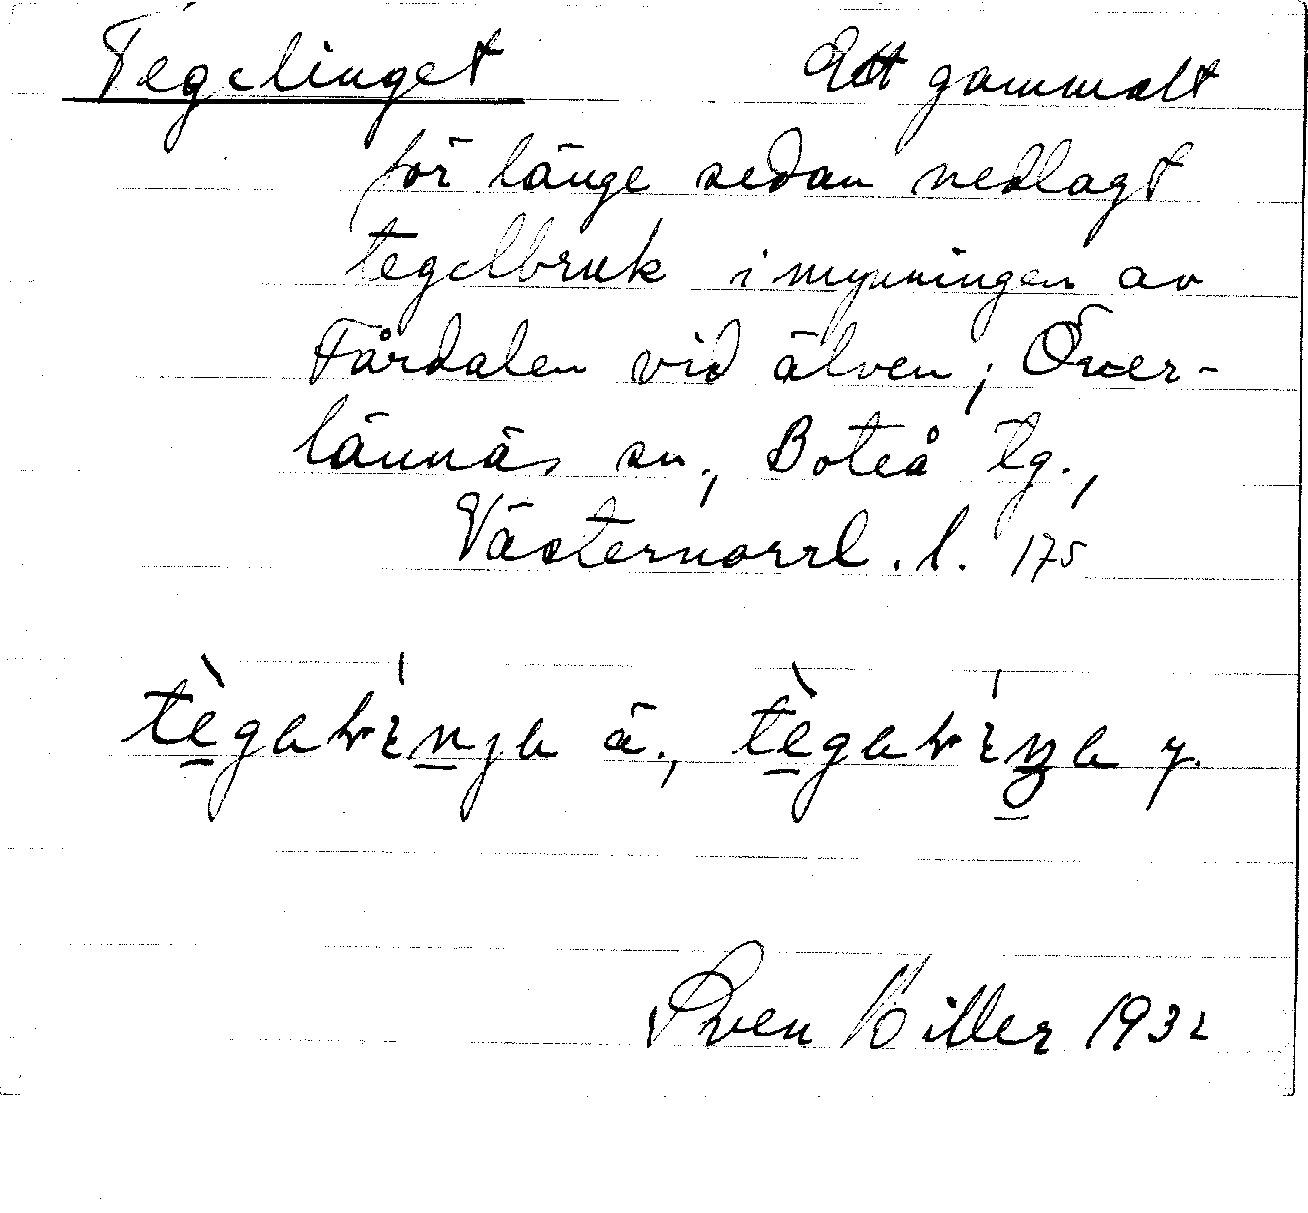 Tegelinget Ett gammalt
för länge sedan nedlagt
tegelbruk i mynningen av
Fårdalen vid älven; Över-
lännäs sn., Boteå tg.,
Västernorrl. l. 175
ä., y.
Sven Hiller 1932